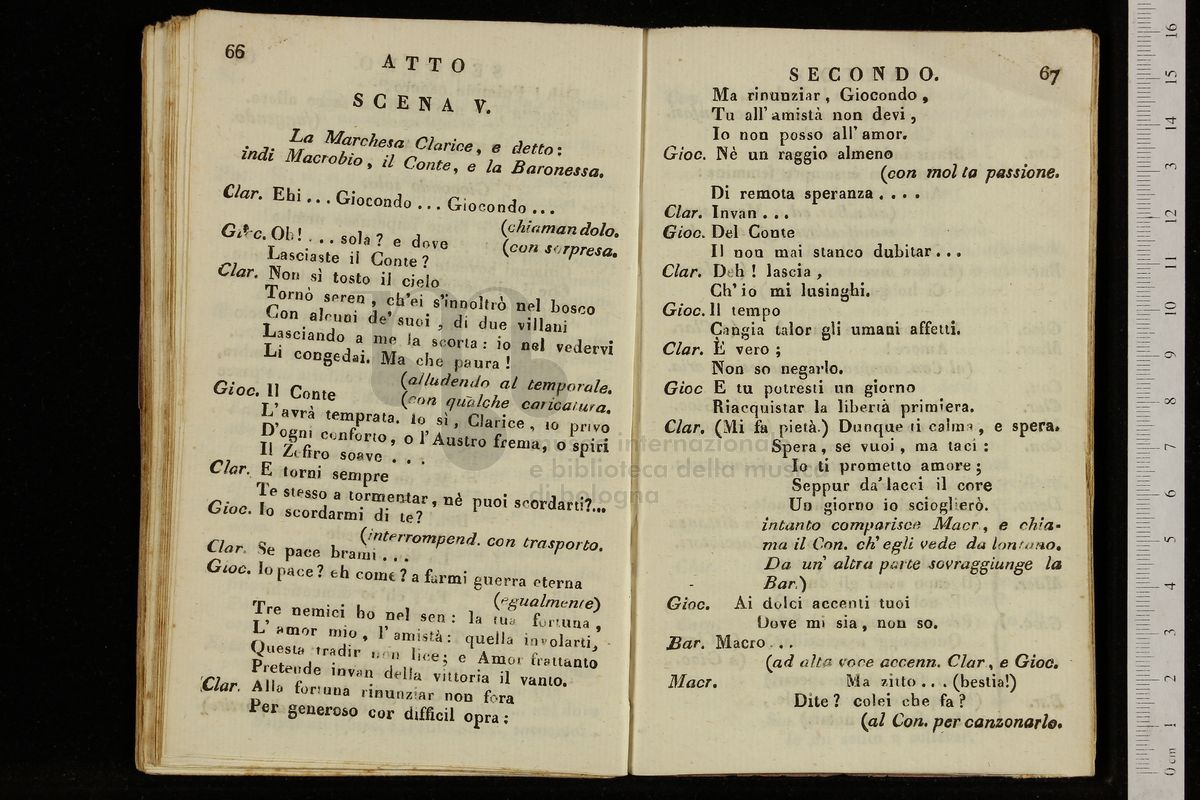 66
ATTO
SCENA V.
La Marchesa Clarice, e detto:
indi Macrobio, il Conte, e la Baronessa.
Clar. Ehi ... Giocondo ... Giocondo ...
(chiamandolo.
Gioc. Oh! ... sola? e dove (con sorpresa.
Lasciaste il Conte?
Clar. Non sì tosto il cielo
Tornò seren, ch'ei s'innoltrò nel bosco
Con alcuni de' suoi, di due villani
Lasciando a me la scorta: io nel vedervi
Li congedai. Ma che paura!
(alludendo al temporale.
Gioc. Il Conte (con qualche caricatura.
L'avrà temprata. Io sì, Clarice, io privo
D'ogni conforto, o l'Austro frema, o spiri
Il Zefiro soave ...
Clar. E torni sempre
Te stesso a tormentar, nè puoi scordarti?...
Gioc. Io scordarmi di te?
(interrompend. con trasporto.
Clar. Se pace brami ...
Gioc. Io pace? eh come? a farmi guerra eterna
(egualmente)
Tre nemici ho nel sen: la tua fortuna,
L'amor mio, l'amistà: quella involarti,
Questa tradir non lice; e Amor frattanto
Pretende invan della vittoria il vanto.
Clar. Alla fortuna rinunziar non fora
Per generoso cor difficil opra:
SECONDO. 67
Ma rinunziar, Giocondo,
Tu all' amistà non devi,
Io non posso all' amor.
Gioc. Nè un raggio almeno
(con molta passione.
Di remota speranza ....
Clar. Invan ...
Gioc. Del Conte
Il non mai stanco dubitar...
Clar. Deh! lascia,
Ch' io mi lusinghi.
Gioc. Il tempo
Cangia talor gli umani affetti.
Clar. È vero;
Non so negarlo.
Gioc E tu potresti un giorno
Riacquistar la libertà primiera.
Clar. (Mi fa pietà.) Dunque ti calma, e spera.
Spera, se vuoi, ma taci:
Io ti prometto amore;
Seppur da' lacci il core
Un giorno io scioglierò.
intanto comparisce Macr, e chia-
ma il Con. ch' egli vede da lontano.
Da un' altra parte sovraggiunge la
Bar.)
Gioc. Ai dolci accenti tuoi
Dove mi sia, non so.
Bar. Macro...
(ad alta voce accenn. Clar, e Gioc.
Macr. Ma zitto ... (bestia!)
Dite? colei che fa?
(al Con. per canzonarlo.
museo internazionale
e biblioteca della musica
di bologna
0 cm 1 2 3 4 5 6 7 8 9 10 11 12 13 14 15 16